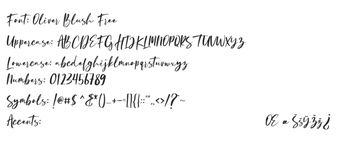 Font: Oliver Blush Free
Uppercase: ABCDEFGHIJKLMNOPQRSTUVWXYZ
Lowercase: abcdefghijklmnopqrstuvwxyz
Numbers: 0123456789
Symbols: !@#$^&*()_+-=[]{|:;"'.,<>/?~
Accents: ŒœŠšŸŽž¿